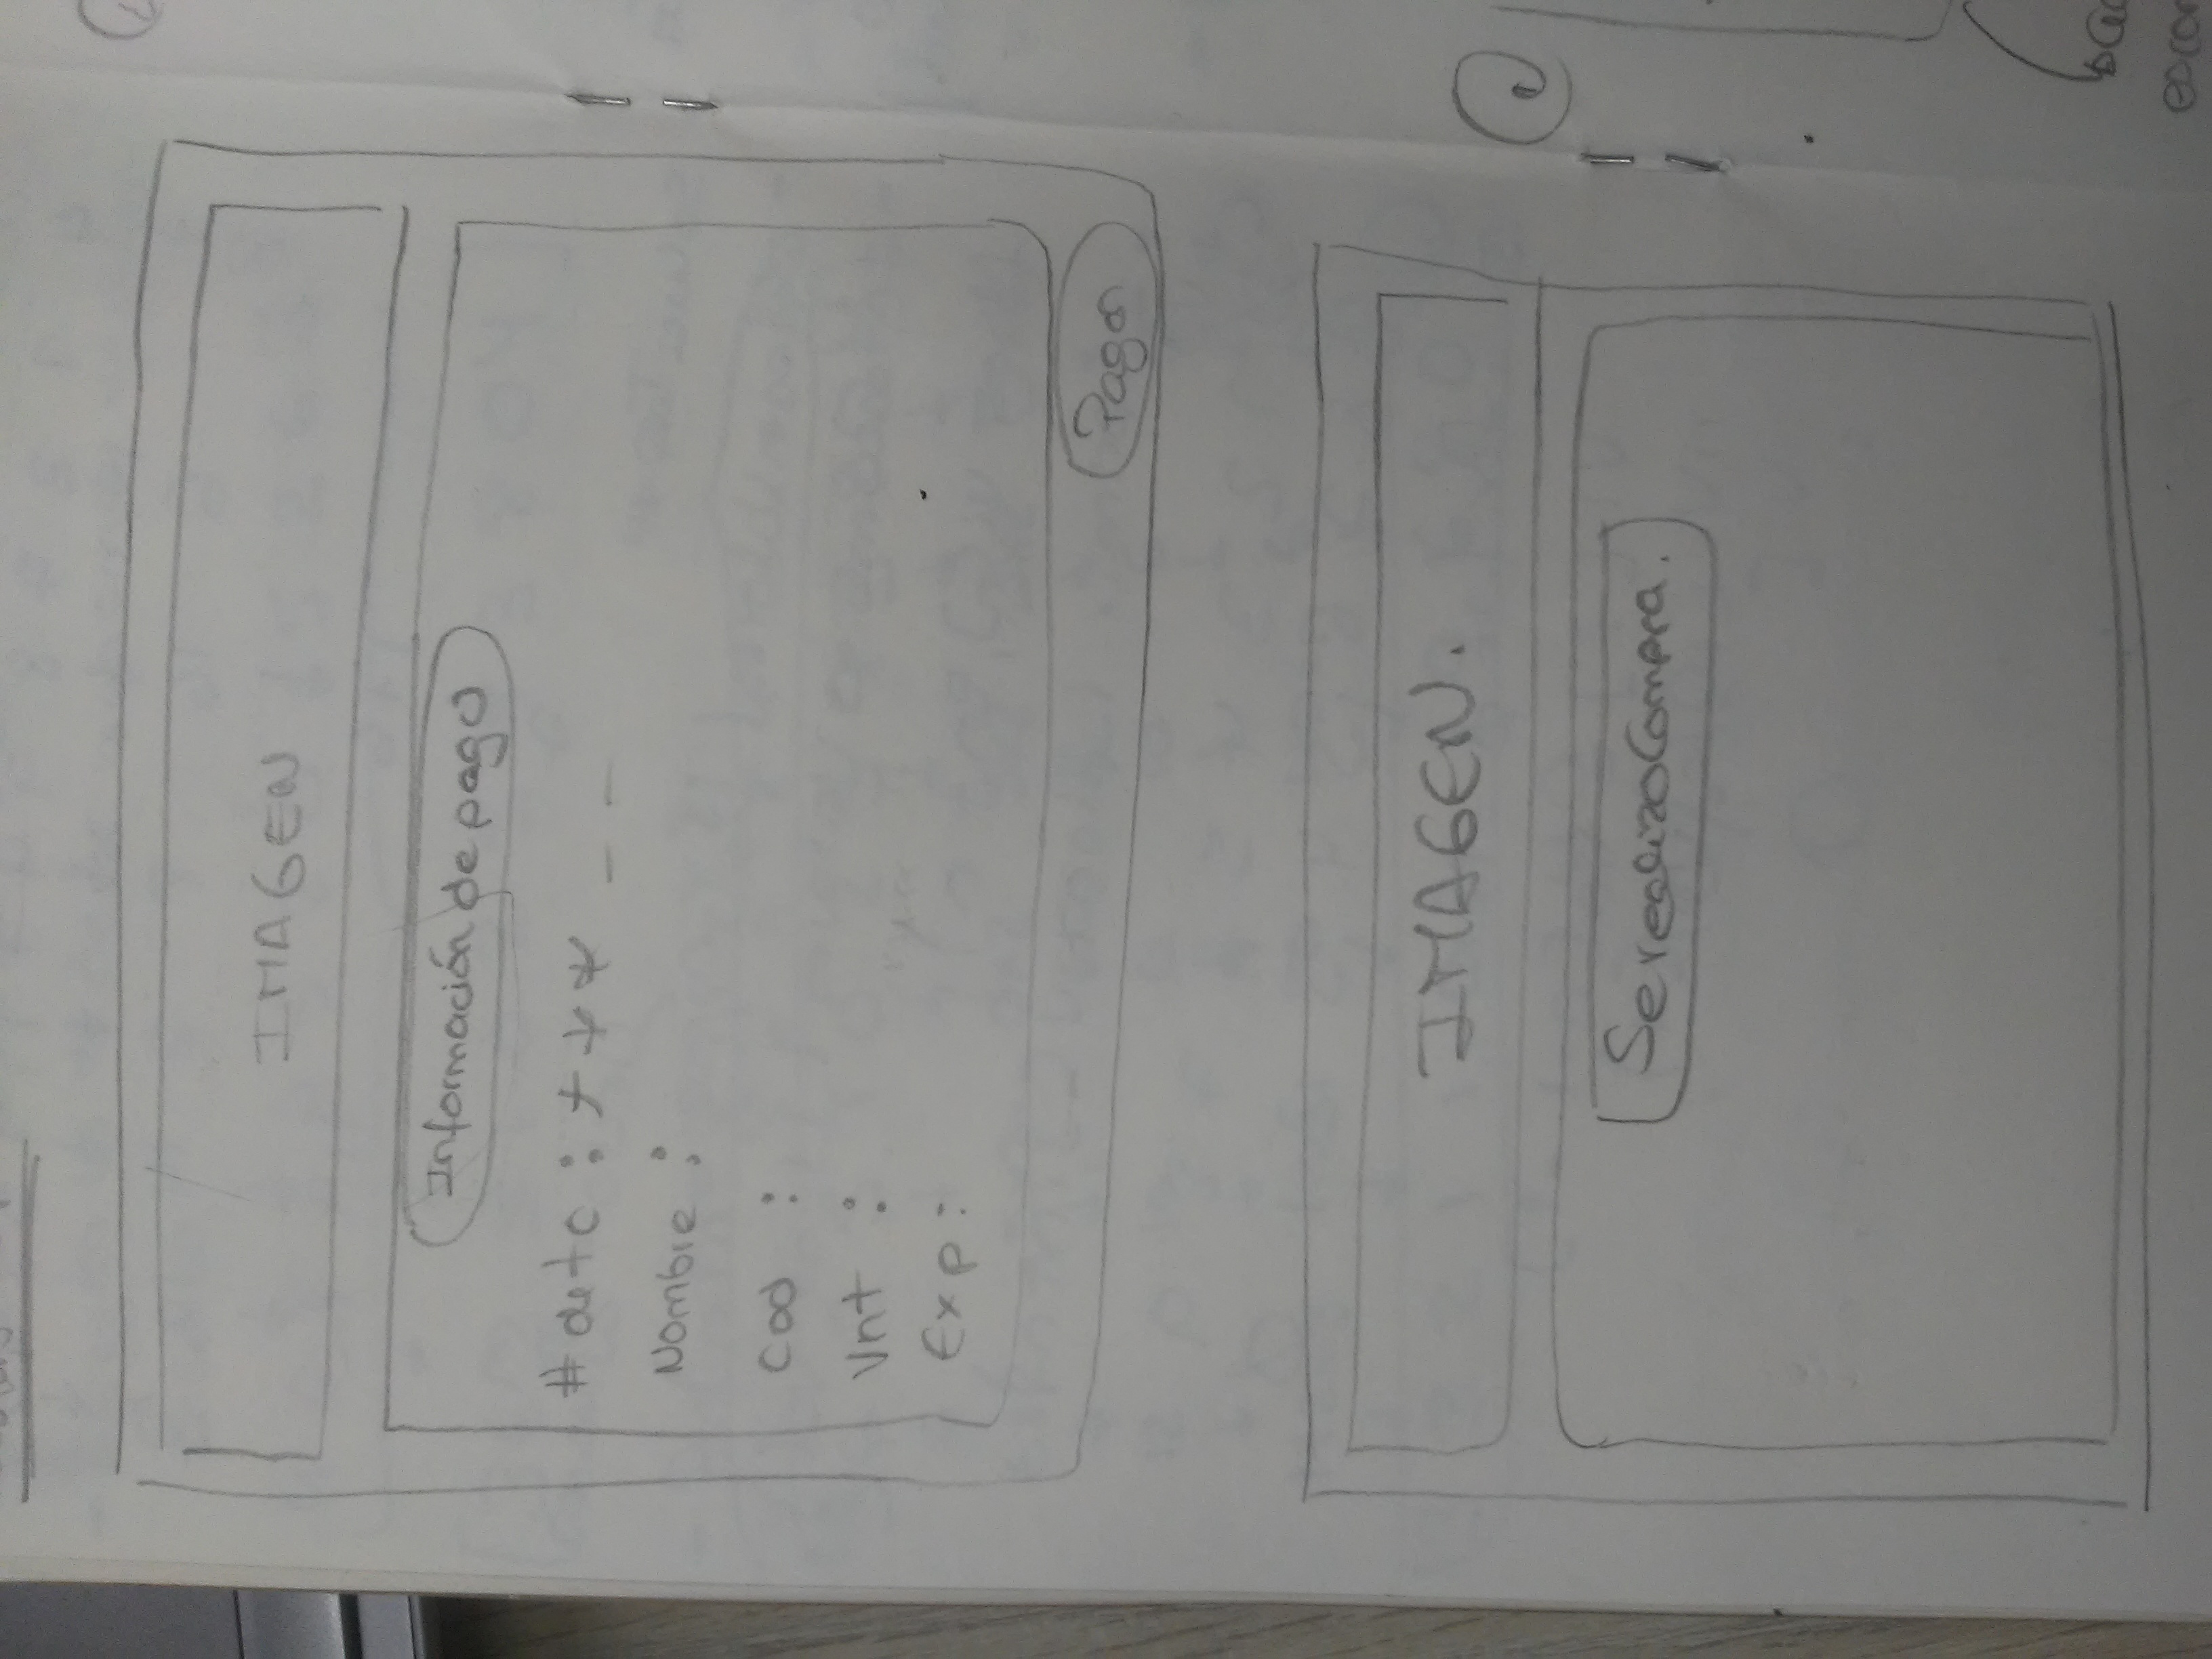 IMAGEN
Información de pago
# de tc : * * * _ _
Nombre :
Cod :
Vnt :
Exp :
Pagar
IMAGEN.
Se realizo Compra.